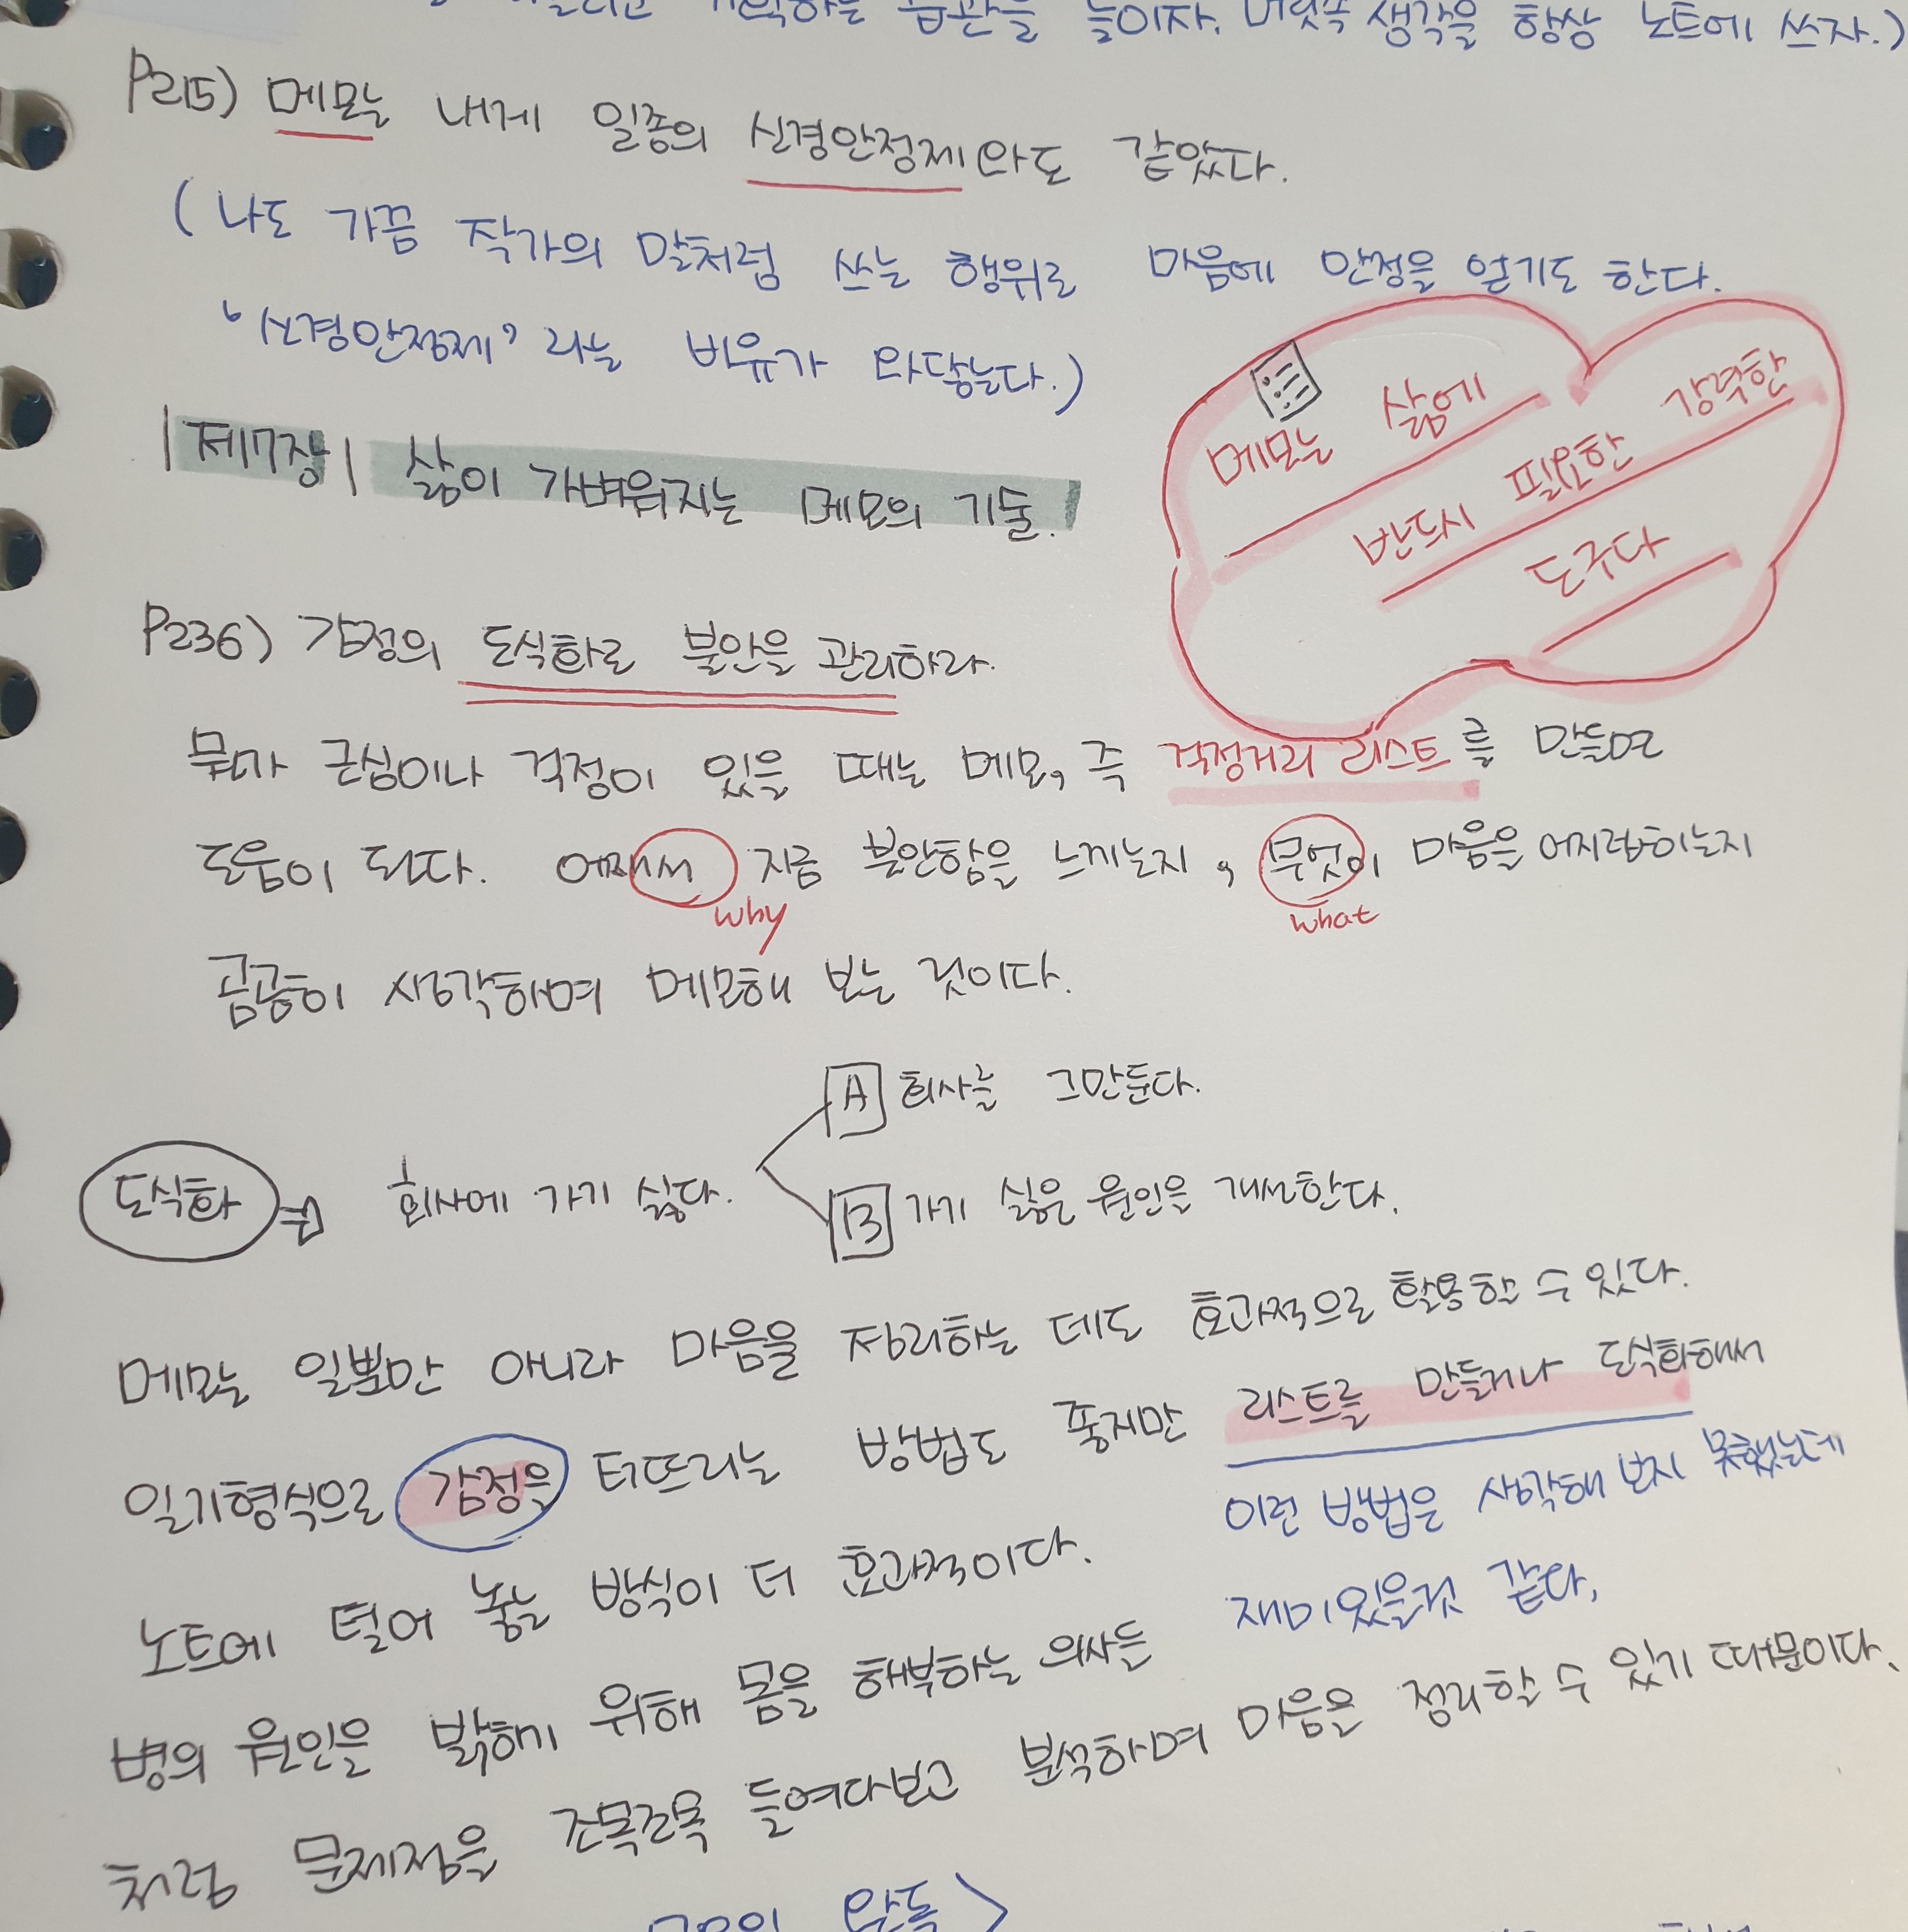 기록하는 습관을 높이자. 머릿속 생각을 항상 노트에 쓰자.)
P215) 메모는 내게 일종의 신경안정제와도 같았다.
(나도 가끔 작가의 말처럼 쓰는 행위로 마음에 안정을 얻기도 한다.
'신경안정제'라는 비유가 와닿는다.)
|제7장| 삶이 가벼워지는 메모의 기술.
메모는 삶에 강력한
반드시 필요한
도구다
P236) 감정의 도식화로 불안을 관리하라.
뭔가 근심이나 걱정이 있을 때는 메모, 즉 걱정거리 리스트를 만들면
도움이 된다. 어째서 지금 불안함을 느끼는지, 무엇이 마음을 어지럽히는지
why what
곰곰이 생각하며 메모해 보는 것이다.
A 회사를 그만둔다.
도식화 ⇨ 회사에 가기 싫다.
B 가기 싫은 원인을 개선한다.
메모는 일뿐만 아니라 마음을 정리하는 데도 효과적으로 활용할 수 있다.
일기형식으로 감정을 터뜨리는 방법도 좋지만 리스트를 만들거나 도식화해서
이런 방법은 생각해 보지 못했는데
노트에 털어 놓는 방식이 더 효과적이다.
재미있을것 같다.
병의 원인을 밝히기 위해 몸을 해부하는 의사들
처럼 문제점을 조목조목 들여다보고 분석하며 마음을 정리할 수 있기 때문이다.